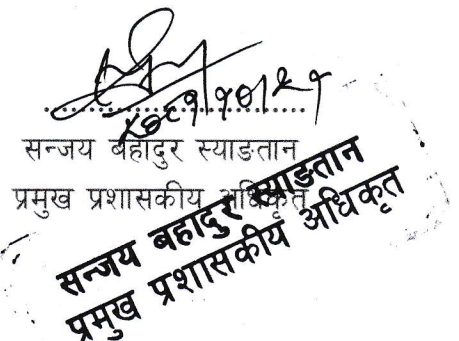 सन्जय बहादुर स्याङतान
प्रमुख प्रशासकीय अधिकृत
सन्जय बहादुर स्याङतान
प्रमुख प्रशासकीय अधिकृत